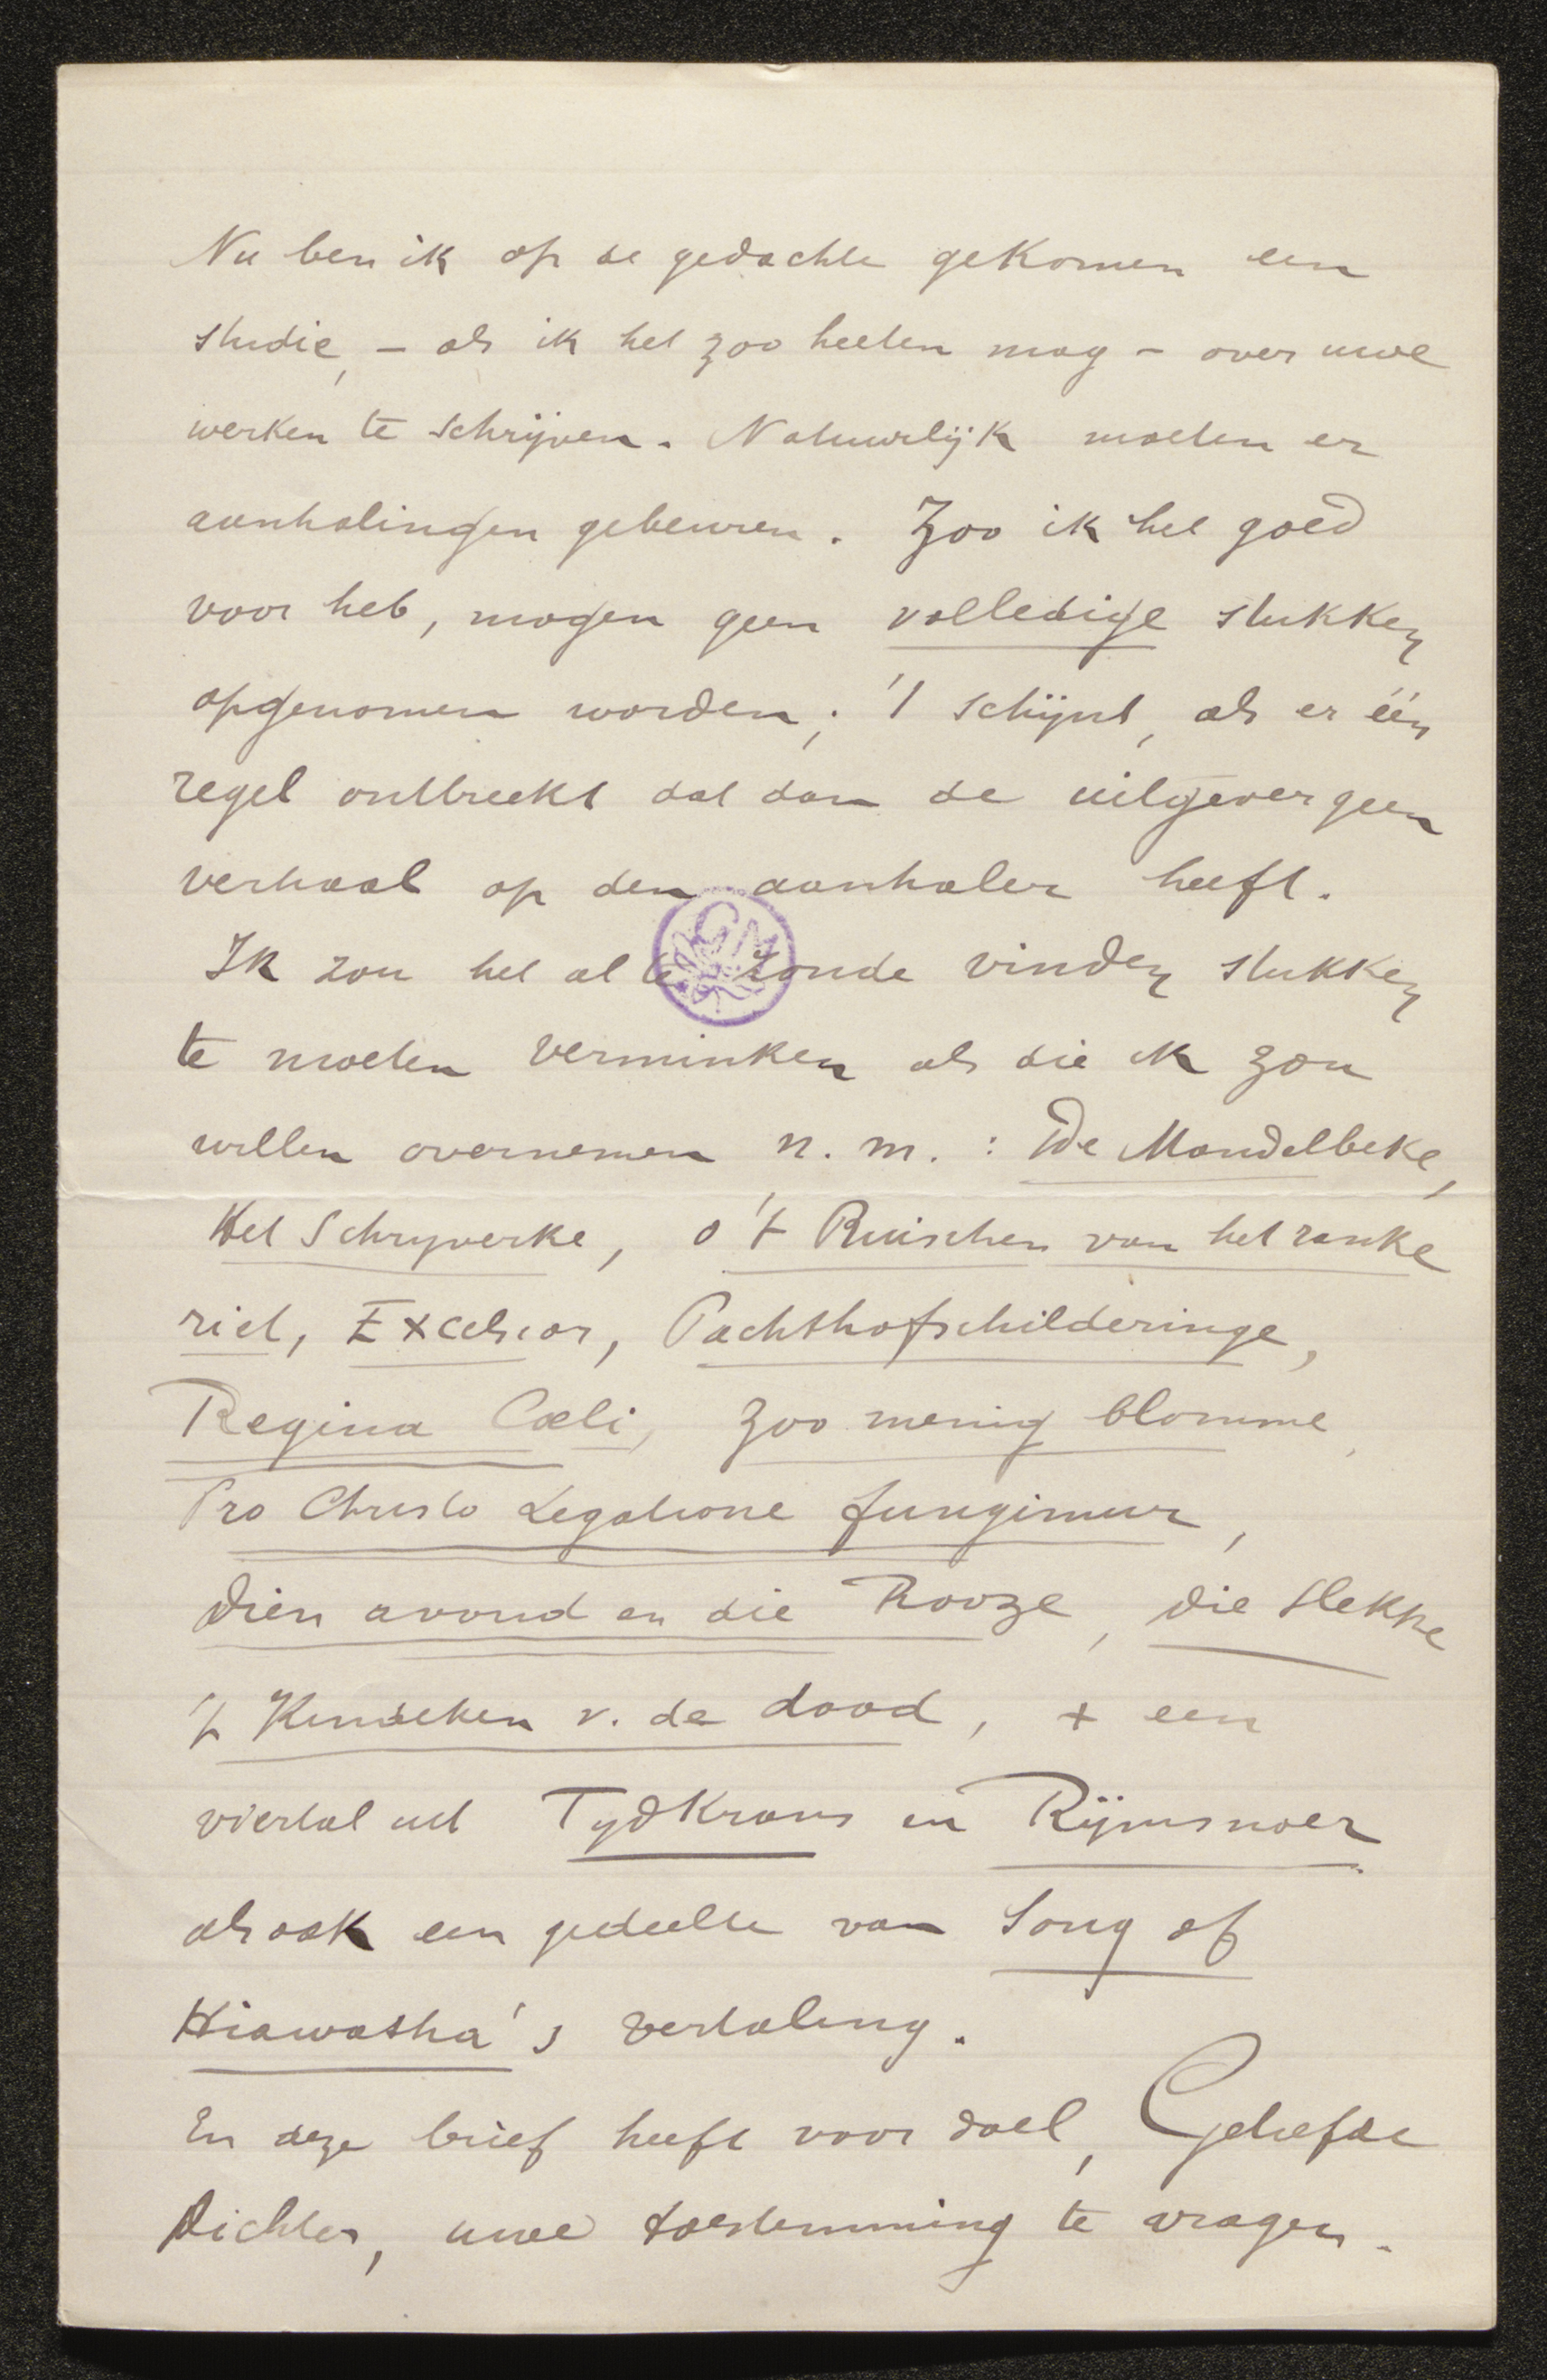 Nu ben ik op de gedachte gekomen een
studie, – als ik het zoo heeten mag – over uwe
werken te schrijven. Natuurlijk moeten er
aanhalingen gebeuren. Zoo ik het goed
voor heb, mogen geen volledige stukken
opgenomen worden; 't schijnt, als er één
regel ontbreekt dat dan de uitgever geen
verhaal op den aanhaler heeft.
Ik zou het al te zonde vinden stukken
te moeten verminken als die ik zou
willen overnemen n. m. : De Mandelbeke,
Het Schryverke, o 't Ruischen van het ranke
riet, Excelsior, Pachthofschilderinge,
Regina Cœli, zoo menig blomme,
Pro Christo Legatione fungimur,
dien avond en die Rooze, die slekke
't Kindeken v. de dood, + een
viertal uit Tydkrans en Rijmsnoer
als ook een gedeelte van Song of
Hiawatha's vertaling.
En deze brief heeft voor doel, Geliefde
Dichter, uwe toestemming te vragen.